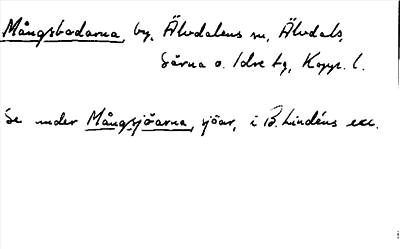 Mångsbodarna, by, Älvdalens sn, Älvdals,
Särna o. Idre tg, Kopp. l.
Se under Mångsjöarna, sjöar, i B. Lindéns exc.